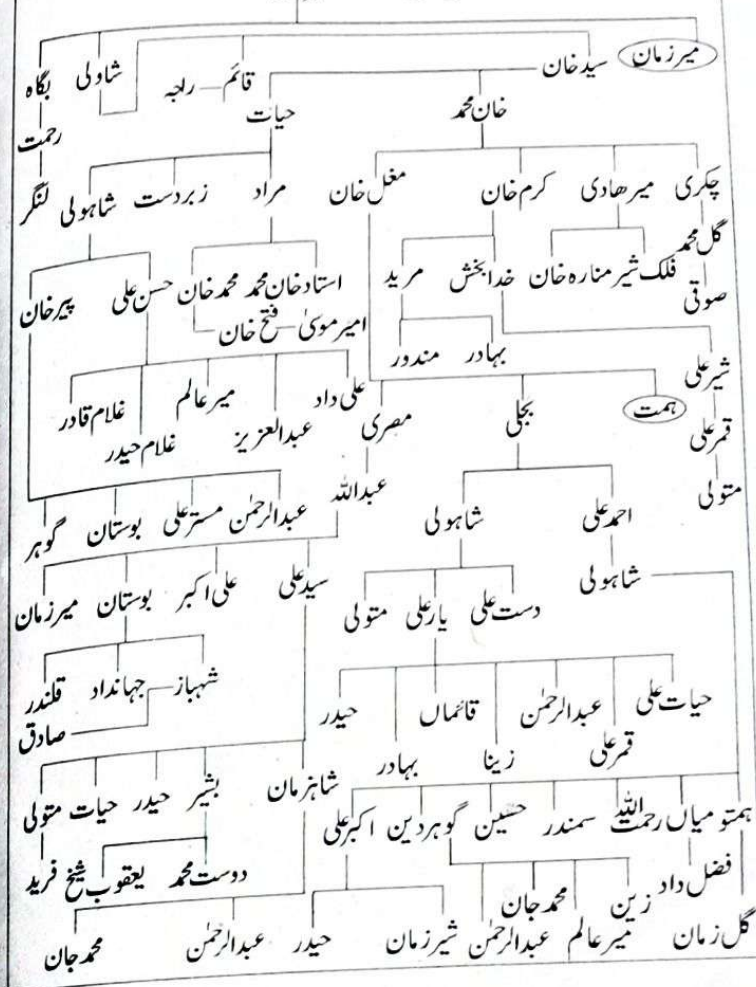 میرزمان سید خان قائم راجہ شاولی بگاہ
خان محمد حیات رحمت
چکری میرھادی کرم خان مغل خان مراد زبردست شاہولی لنگر
گل محمد
صوتی فلک شیر منارہ خان خدا بخش مرید استاد خان محمد محمد خان حسن علی پیر خان
امیر موسیٰ فتح خان
شیر علی بہادر مندور
علی داد عبدالعزیز میر عالم غلام حیدر غلام قادر
ہمت بجلی مصری
قمر علی
متولی
احمد علی شاہولی عبداللہ عبدالرحمٰن مستر علی بوستان گوہر
شاہولی دست علی یار علی متولی سید علی علی اکبر بوستان میرزمان
شہباز جہانداد قلندر
صادق
حیات علی قمر علی عبدالرحمٰن زینا قائماں بہادر حیدر
شاہزمان بشیر حیدر حیات متولی
ہمتو میاں رحمت اللہ سمندر حسین گوہر دین اکبر علی
دوست محمد یعقوب شیخ فرید
فضل داد زین محمد جان
گل زمان میر عالم عبدالرحمٰن شیر زمان حیدر عبدالرحمٰن محمد جان